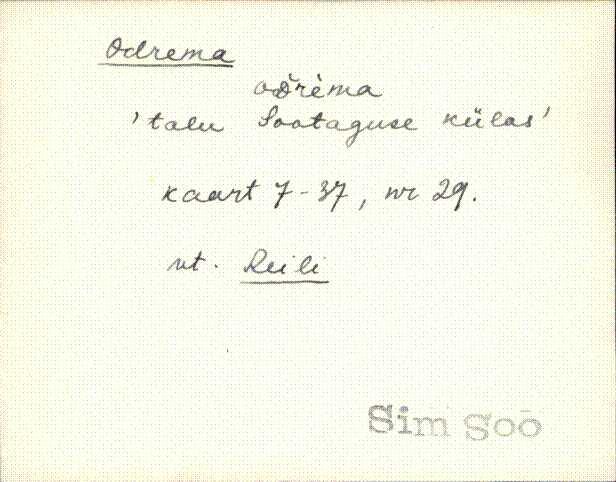 Odrema
oD̆rèma
'talu Sootaguse külas'
kaart 7-37, nr 29.
vt. Reili
Sim Soō